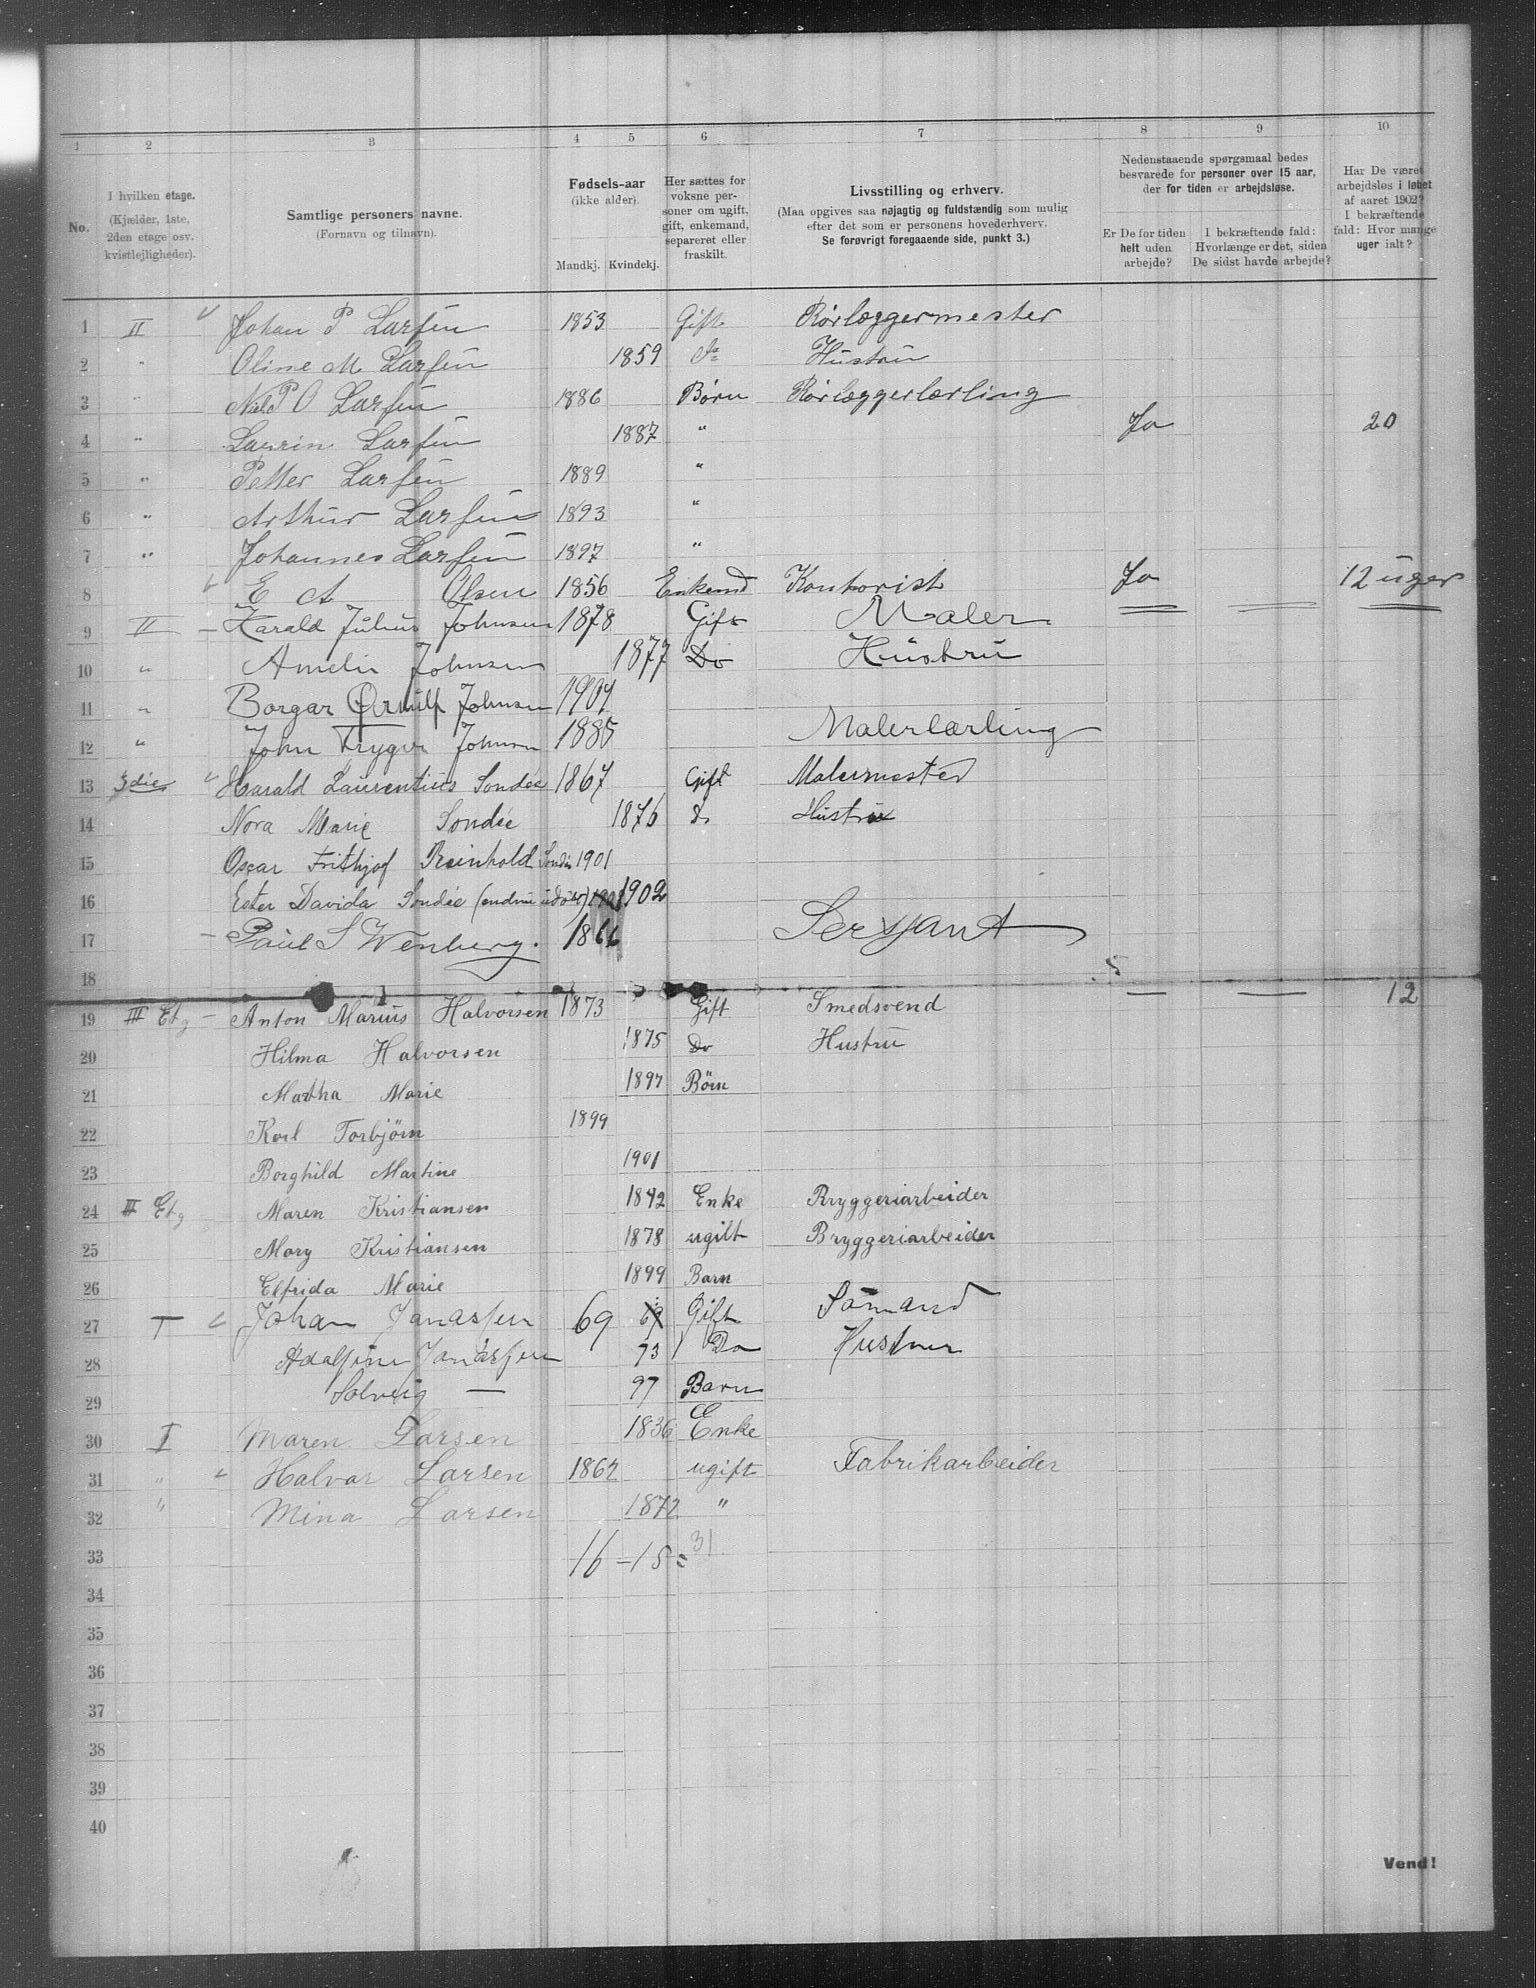 1 2 3 4 5 6 7 8 9 10
No.
I hvilken etage. (Kjælder, 1ste, 2den etage osv. kvistlejligheder).
Samtlige personers navne. (Fornavn og tilnavn).
Fødsels-aar (ikke alder). Mandkj. Kvindekj.
Her sættes for voksne personer om ugift, gift, enkemand, separeret eller fraskilt.
Livsstilling og erhverv. (Maa opgives saa nøjagtig og fuldstændig som mulig efter det som er personens hovederhverv. Se forøvrigt foregaaende side, punkt 3.)
Nedenstaaende spørgsmaal bedes besvarede for personer over 15 aar, der for tiden er arbejdsløse.
Er De for tiden helt uden arbejde?
I bekræftende fald: Hvorlænge er det, siden De sidst havde arbejde?
Har De været arbejdsløs i løbet af aaret 1902? I bekræftende fald: Hvor mange uger ialt?
1 II Johan P Larsen 1853 Gift Rørlæggermester
2 " Oline M Larsen 1859 do Hustru
3 " Niels P O Larsen 1886 Børn Rørlæggerlærling
4 " Laurin Larsen 1887 " Ja 20
5 " Petter Larsen 1889 "
6 " Arthur Larsen 1893 "
7 " Johannes Larsen 1897 "
8 E A Olsen 1856 Enkemd Kontorist Ja 12 uger
9 II Harald Julius Johnsen 1878 Gift Maler
10 " Amelie Johnsen 1877 Do Hustru
11 " Borgar Ørnulf Johnsen 1901
12 " John Trygve Johnsen 1885 Malerlærling
13 3die Harald Laurentius Sondée 1867 Gift Malermester
14 Nora Marie Sondée 1876 d Hustru
15 Oscar Frithjof Reinhold Sondée 1901
16 Ester Davida Sondée (endnu udøbt) 1902
17 Paul S Wenberg. 1866 Sersjant
18
19 III Etg Anton Marius Halvorsen 1873 Gift Smedsvend — — 12
20 Hilma Halvorsen 1875 Do Hustru
21 Martha Marie 1897 Børn
22 Karl Torbjørn 1899
23 Borghild Martine 1901
24 III Etg Maren Kristiansen 1842 Enke Bryggeriarbeider
25 Mary Kristiansen 1878 ugift Bryggeriarbeider
26 Elfrida Marie 1899 Barn
27 I Johan Jonassen 69 Gift Sømand
28 Adolfine Jonassen 73 Do Hustru
29 Solveig — 97 Barn
30 I Maren Larsen 1836 Enke
31 " Halvar Larsen 1862 ugift Fabrikarbeider
32 " Mina Larsen 1872 "
33 16 – 15 = 31
34
35
36
37
38
39
40
Vend!